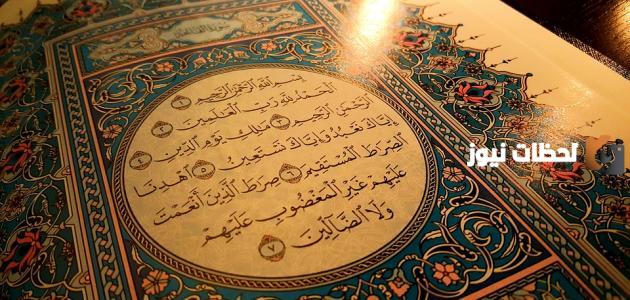 بِسْمِ اللَّهِ الرَّحْمَٰنِ الرَّحِيمِ ١
الْحَمْدُ لِلَّهِ رَبِّ الْعَالَمِينَ ٢
الرَّحْمَٰنِ الرَّحِيمِ ٣ مَالِكِ يَوْمِ الدِّينِ ٤
إِيَّاكَ نَعْبُدُ وَإِيَّاكَ نَسْتَعِينُ ٥ اهْدِنَا
الصِّرَاطَ الْمُسْتَقِيمَ ٦ صِرَاطَ الَّذِينَ أَنْعَمْتَ
عَلَيْهِمْ غَيْرِ الْمَغْضُوبِ عَلَيْهِمْ
وَلَا الضَّالِّينَ ٧
لحظات نيوز